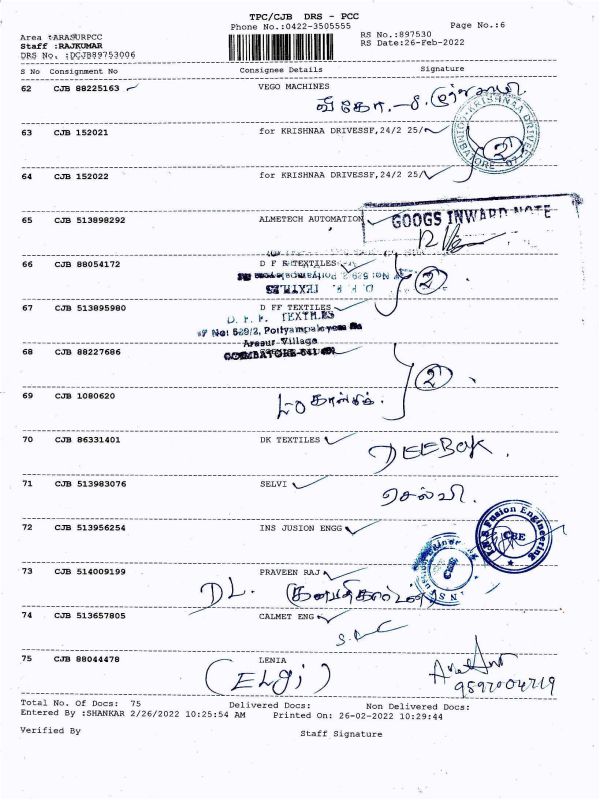 TPC/CJB DRS - PCC
Phone No.:0422-3505555
Page No.:6
Area :ARASURPCC
RS No.:897530
Staff :RAJKUMAR
RS Date:26-Feb-2022
DRS No. :DCJB89753006
S No Consignment No Consignee Details Signature
62 CJB 88225163 VEGO MACHINES
63 CJB 152021 for KRISHNAA DRIVESSF,24/2 25/
2
64 CJB 152022 for KRISHNAA DRIVESSF,24/2 25/
65 CJB 513898292 ALMETECH AUTOMATION
GOOGS INWARD NOTE
66 CJB 88054172 D F F TEXTILES
D. F. F. TEXTILES
2
67 CJB 513895980 D FF TEXTILES
D. F. F. TEXTILES
Arasur Village
68 CJB 88227686
2
69 CJB 1080620
70 CJB 86331401 DK TEXTILES
DEEBOK.
71 CJB 513983076 SELVI
செல்வி.
72 CJB 513956254 INS JUSION ENGG
I.N.S Fusion Engineering
CBE
73 CJB 514009199 PRAVEEN RAJ
DL.
74 CJB 513657805 CALMET ENG
75 CJB 88044478 LENIA
(ELgi)
Total No. Of Docs: 75 Delivered Docs: Non Delivered Docs:
Entered By :SHANKAR 2/26/2022 10:25:54 AM Printed On: 26-02-2022 10:29:44
Verified By
Staff Signature